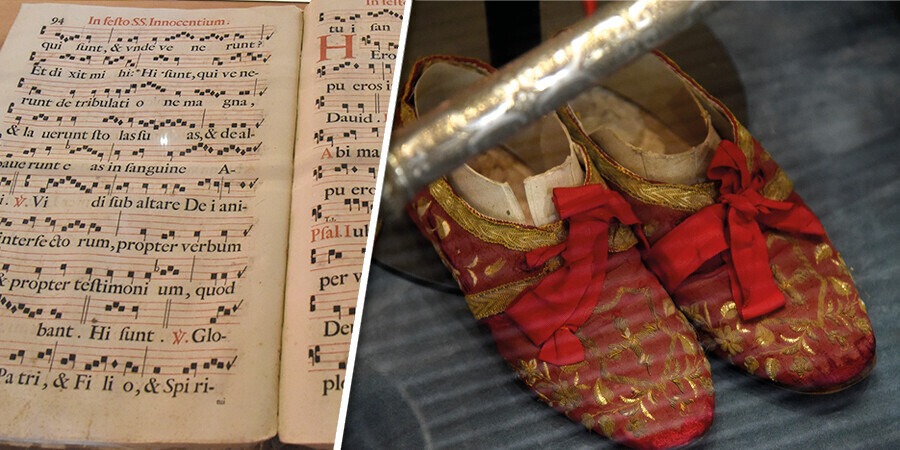 94 In festo SS. Innocentium.
qui sunt, & vnde ve ne runt?
Et di xit mi hi: Hi sunt, qui ve ne-
runt de tribulati o ne ma gna,
& la uerunt sto las su as, & de al-
baue runt e as in sanguine A-
i. ℣. Vi di sub altare De i ani-
interfecto rum, propter verbum
& propter testimoni um, quod
bant. Hi sunt. ℣. Glo-
Patri, & Fi li o, & Spi ri-
In festo
tu i san
H Ero
pu eros
Dauid.
A bi ma
pu eros
Psal.
per v
De
plo